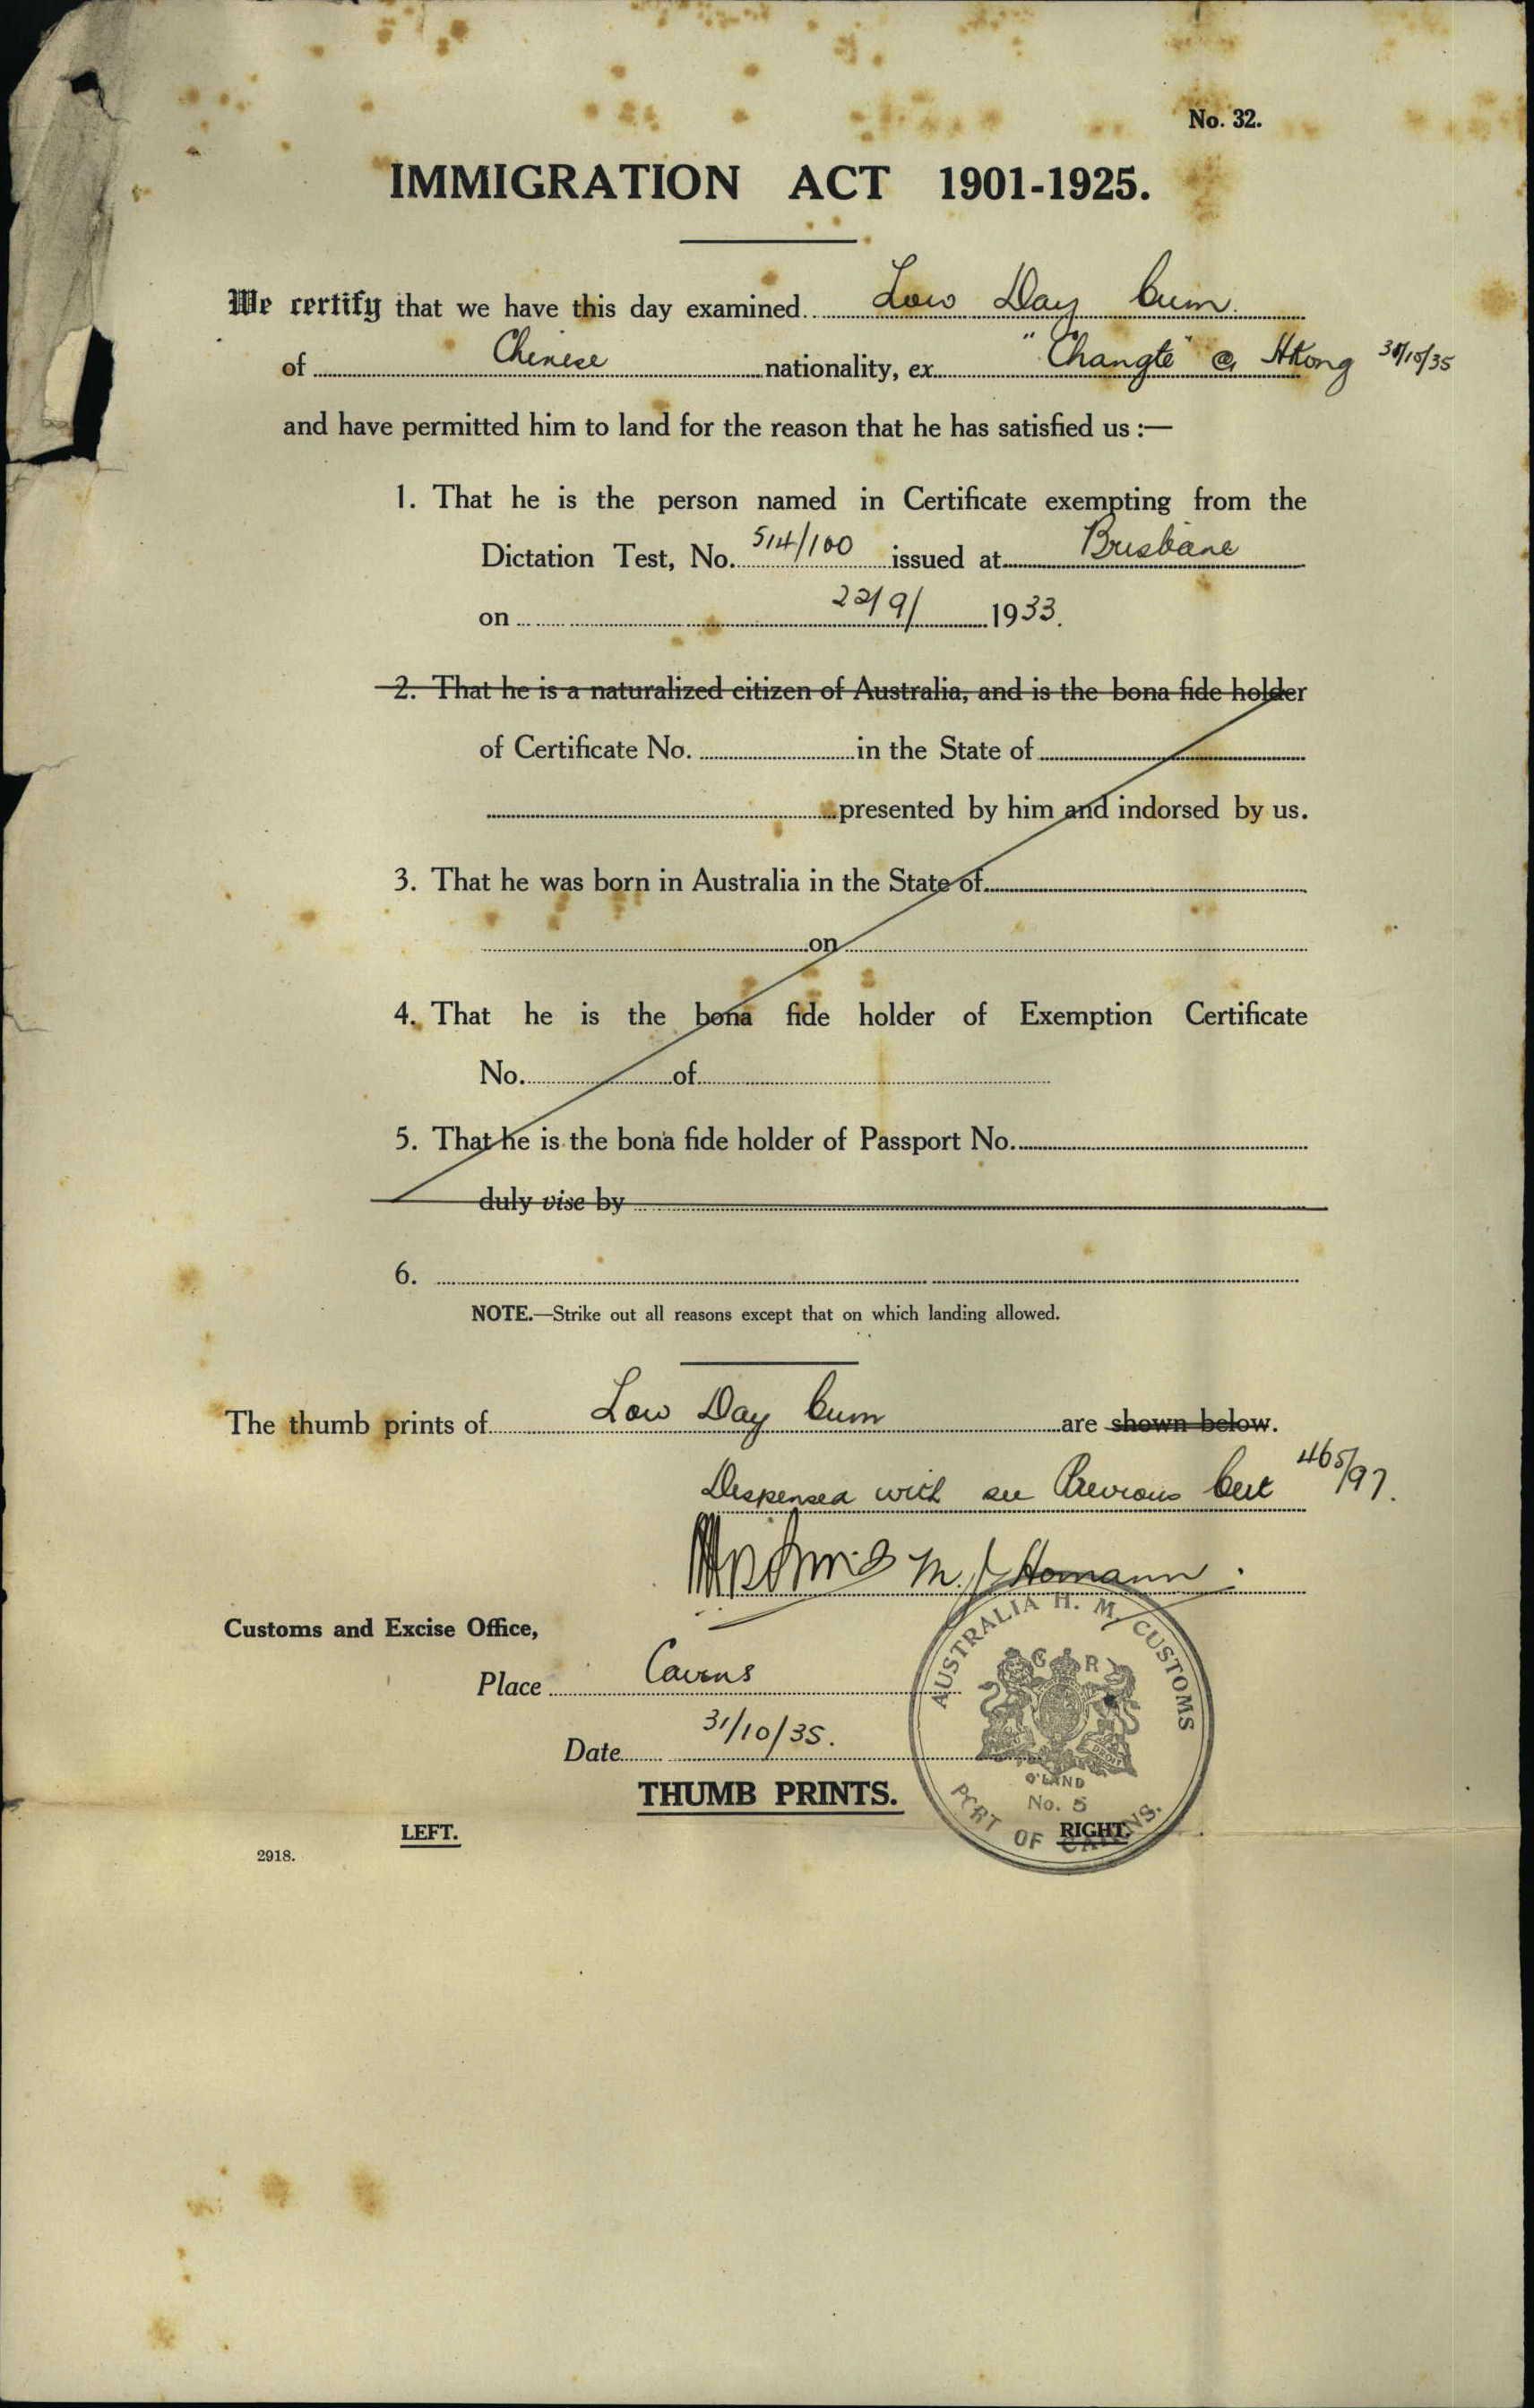 No. 32.
IMMIGRATION ACT 1901-1925.
We certify that we have this day examined Low Day Cum.
of Chinese nationality, ex "Changte" @ HKong 31/10/35
and have permitted him to land for the reason that he has satisfied us :—
1. That he is the person named in Certificate exempting from the
Dictation Test, No. 514/100 issued at Brisbane
on 22/9/ 1933.
2. That he is a naturalized citizen of Australia, and is the bona fide holder
of Certificate No. in the State of
presented by him and indorsed by us.
3. That he was born in Australia in the State of
on
4. That he is the bona fide holder of Exemption Certificate
No. of
5. That he is the bona fide holder of Passport No.
duly vise by
6.
NOTE.—Strike out all reasons except that on which landing allowed.
The thumb prints of Low Day Cum are shown below.
Dispensed with see Previous Cert 465/97.
M. J. Homann.
Customs and Excise Office,
Place Cairns
Date 31/10/35.
THUMB PRINTS.
LEFT. RIGHT.
2918.
AUSTRALIA H. M. CUSTOMS
G R
Q'LAND
No. 5
PORT OF CAIRNS.